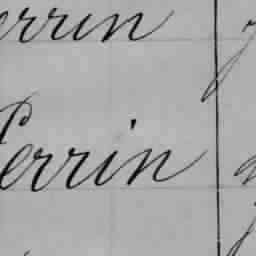 errin
Perrin